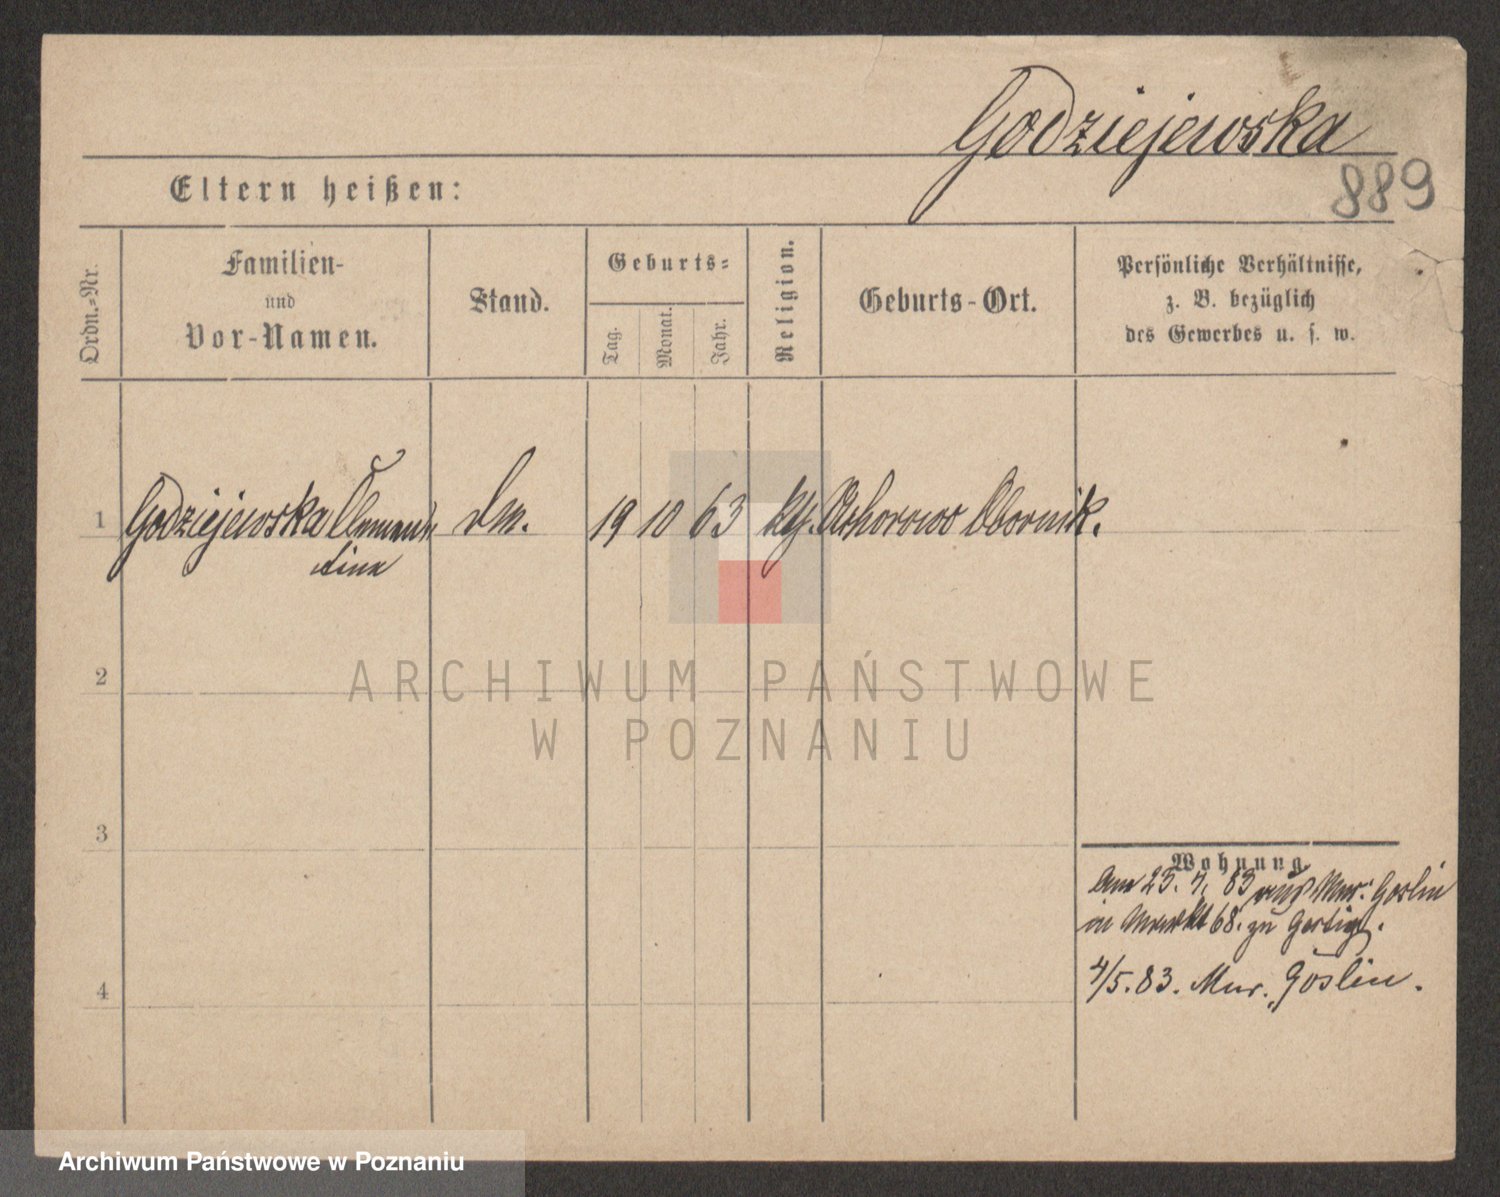 Godziejewska
889
Eltern heißen:
Ordn.=Nr.
Familien-
und
Vor-Namen.
Stand.
Geburts=
Tag.
Monat.
Jahr.
Religion.
Geburts-Ort.
Persönliche Verhältnisse,
z. B. bezüglich
des Gewerbes u. s. w.
1 Godziejewska Clemen
tina
19 10 63 Obornik.
2
3
4
Wohnung.
Am 23. 4. 83 aus Mur: Goslin
in Markt 68. zu
4/5. 83. Mur. Goslin.
ARCHIWUM PAŃSTWOWE
W POZNANIU
Archiwum Państwowe w Poznaniu